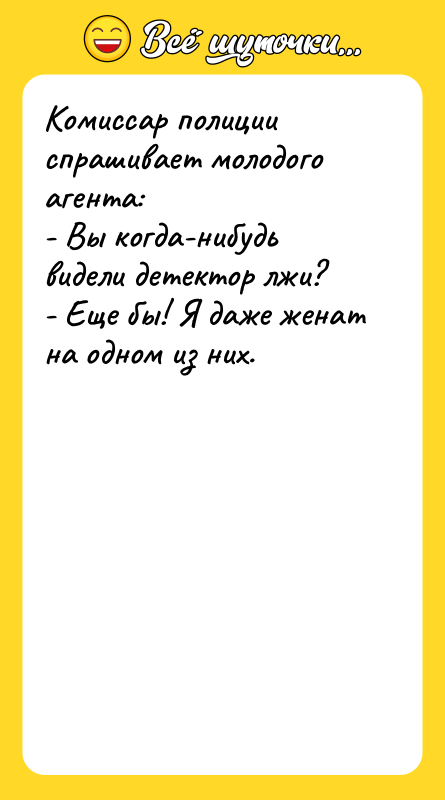 Всё шуточки...
Комиссар полиции
спрашивает молодого
агента:
- Вы когда-нибудь
видели детектор лжи?
- Еще бы! Я даже женат
на одном из них.